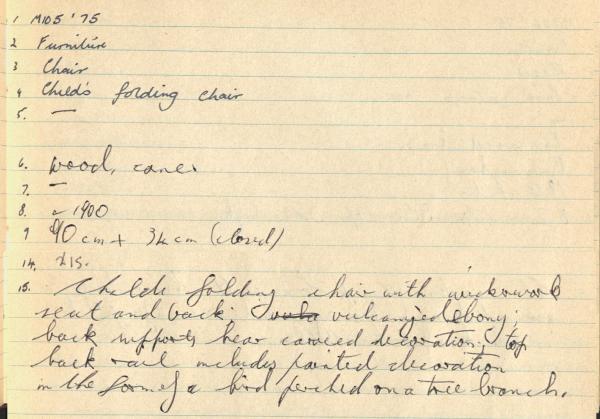 1 M105 '75
2 Furniture
3 Chair
4 Child's folding chair
5. —
6. wood, cane.
7. —
8. ~ 1900
9 90 cm + 34 cm (closed)
14. £15.
15. Childs folding chair with wickerwork
seat and back. vulcanized ebony;
back supports bear carved decoration; top
back rail includes painted decoration
in the form of a bird perched on a tree branch.